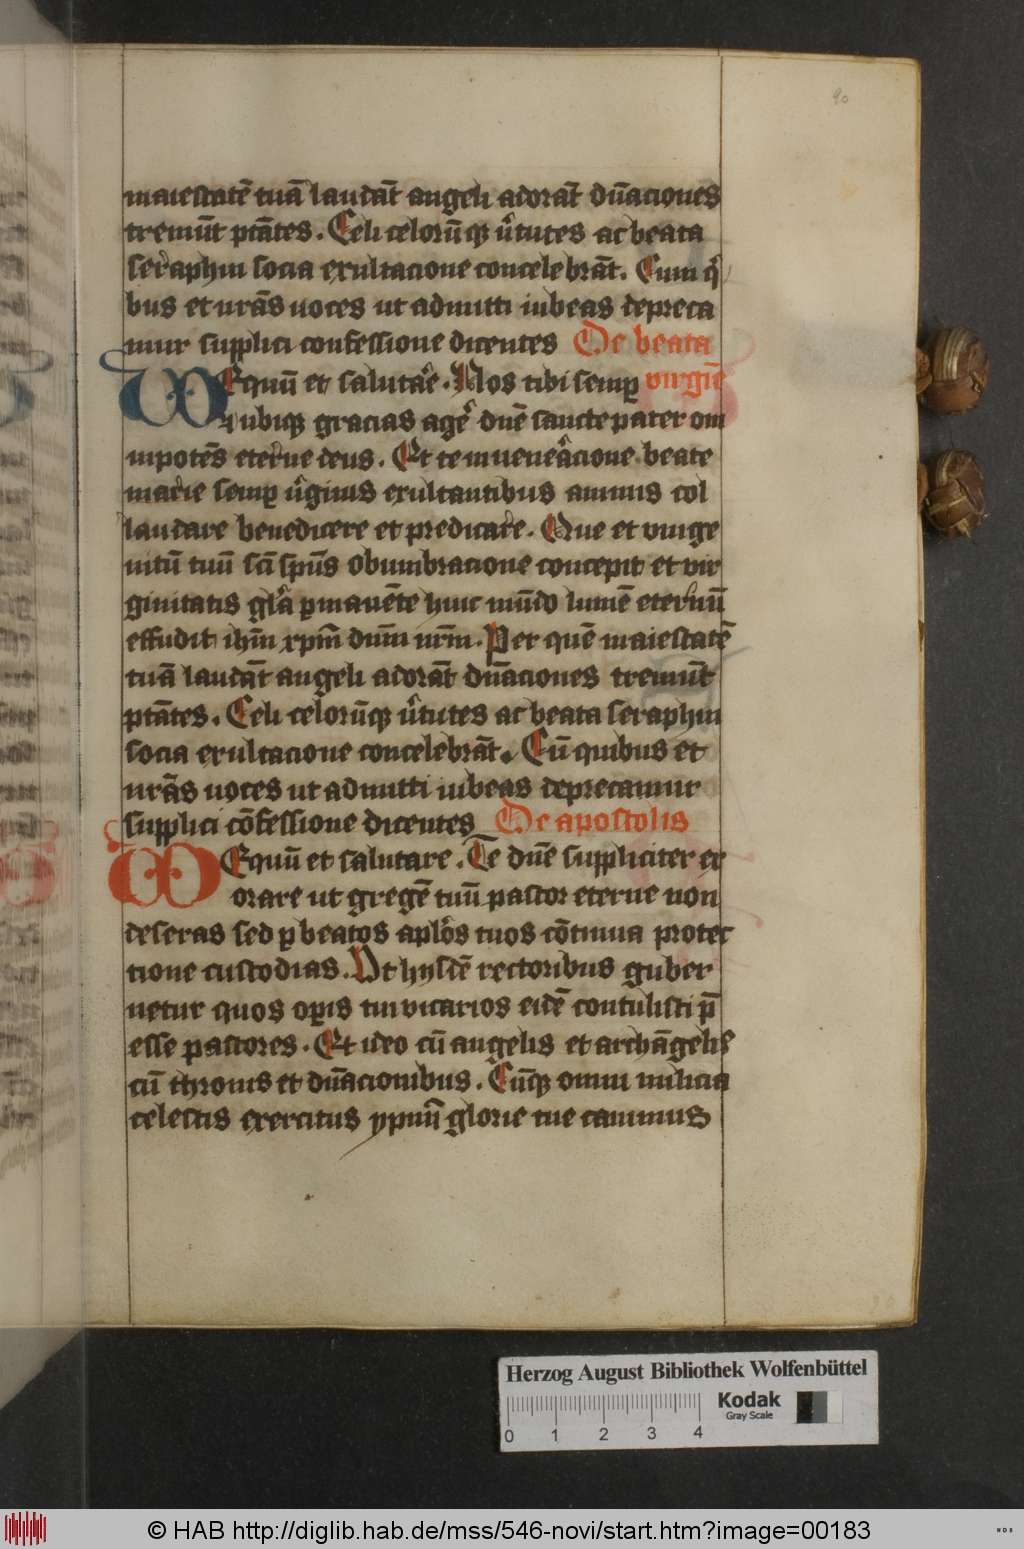 90
maiestatē tuā laudāt angeli adorāt dn̄aciones
tremūt ptātes. Celi celorūq; v̓tutes ac beata
seraphin socia exultacione concelebrāt. Cum q̓
bus et nrās uoces ut admitti iubeas depreca
mur supplici confessione dicentes De beata
VEquū et salutar̄e. Nos tibi semp virgīe
ubiq; gracias agē dn̄e sancte pater om
nipotēs eterne deus. Et te in uenerācione beate
marie semp v̓ginis exultantibus animis col
laudare benedicere et predicare. Que et vnige
nitū tuū sc̄i sp̄us obumbracione concepit et vir
ginitatis gl̓a pmanēte huic mūdo lumē eternū
effudit ihm̄ xpm̄ dnm̄ nrm̄. Per quē maiestatē
tuā laudāt angeli adorāt dn̄aciones tremūt
ptātes. Celi celorūq; v̓tutes ac beata seraphin
socia exultacione concelebrāt. Cū quibus et
nrās uoces ut admitti iubeas deprecamur
supplici cōfessione dicentes De apostolis
VEquū et salutare. Te dn̄e suppliciter ex
orare ut gregē tuū pastor eterne non
deseras sed p beatos apl̓os tuos cōtinua protec
tione custodias. Vt hysdē rectoribus guber
netur quos opis tui vicarios eidē contulisti p̄
esse pastores. Et ideo cū angelis et archāgelis
cū thronis et dn̄acionibus. Cūq; omni milicia
celestis exercitus ypnū glorie tue canimus
Herzog August Bibliothek Wolfenbüttel
Kodak
Gray Scale
0 1 2 3 4
© HAB http://diglib.hab.de/mss/546-novi/start.htm?image=00183